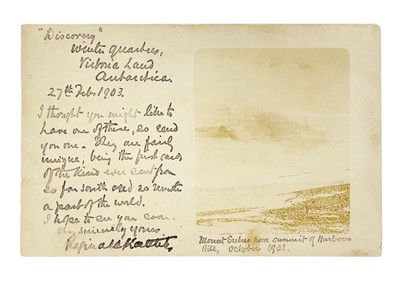 "Discovery"
Winter Quarters,
Victoria Land
Antarctica.
27th Feb. 1903.
I thought you might like to
have one of these, so send
you one. They are fairly
unique, being the first cards
of the kind ever sent from
so far south and so remote
a part of the world.
I hope to see you soon.
Very sincerely yours.
Reginald
Mount Erebus from summit of Harbour
Hill, October 1902.